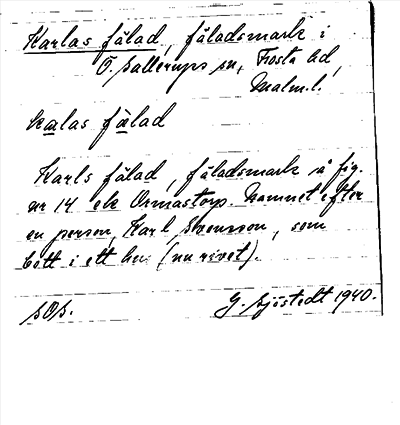 Karlas fälad, fäladsmark i
Ö. Sallerups sn, Frosta hd,
Malm.l.
Kalas fälad
Karls fälad, fäladsmark å fig.
nr 14 ek Ormastorp. Namnet efter
en person, Karl Svensson, som
bott i ett hus (nu rivet).
SOS.
G. Sjöstedt 1940.